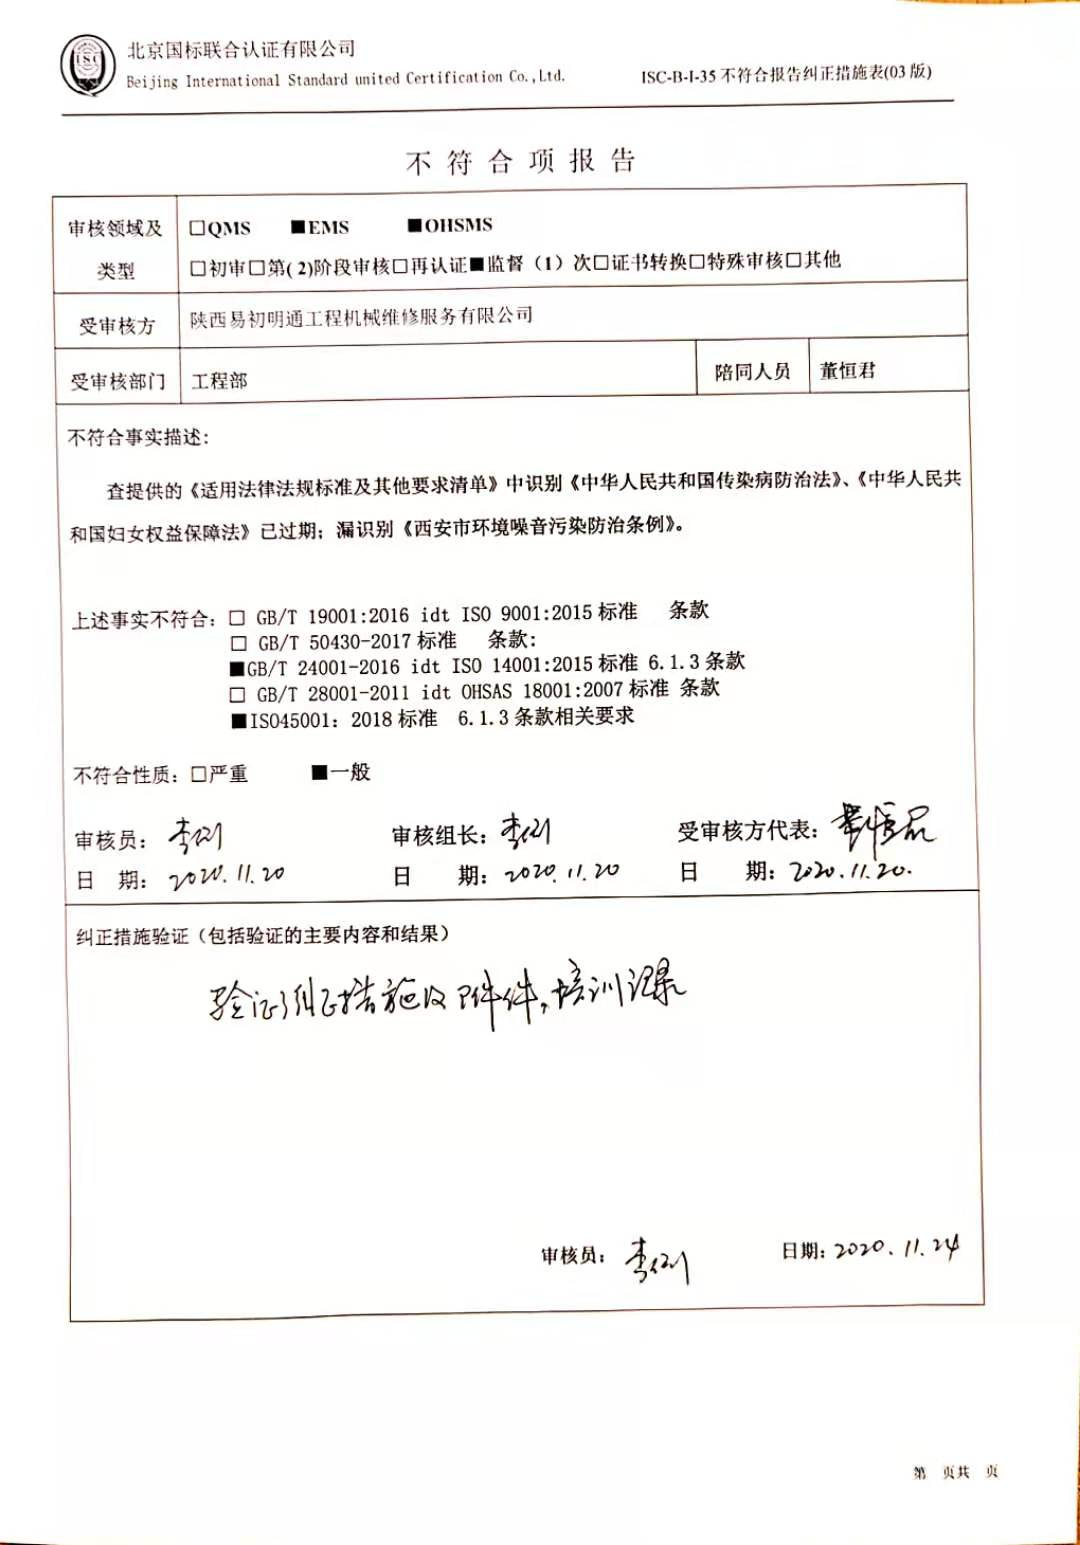 ISC
北京国标联合认证有限公司
Beijing International Standard united Certification Co.,Ltd.
ISC-B-I-35 不符合报告纠正措施表(03 版)
不符合项报告
审核领域及类型
□QMS ■EMS ■OHSMS
□初审□第(2)阶段审核□再认证■监督（1）次□证书转换□特殊审核□其他
受审核方 陕西易初明通工程机械维修服务有限公司
受审核部门 工程部 陪同人员 董恒君
不符合事实描述:
查提供的《适用法律法规标准及其他要求清单》中识别《中华人民共和国传染病防治法》、《中华人民共
和国妇女权益保障法》已过期；漏识别《西安市环境噪音污染防治条例》。
上述事实不符合: □ GB/T 19001:2016 idt ISO 9001:2015 标准 条款
□ GB/T 50430-2017 标准 条款:
■GB/T 24001-2016 idt ISO 14001:2015 标准 6.1.3 条款
□ GB/T 28001-2011 idt OHSAS 18001:2007 标准 条款
■ISO45001: 2018 标准 6.1.3 条款相关要求
不符合性质: □严重 ■一般
审核员: 审核组长: 受审核方代表:
日 期: 2020.11.20 日 期: 2020.11.20 日 期: 2020.11.20.
纠正措施验证（包括验证的主要内容和结果）
验证了纠正措施及附件,培训记录
审核员: 日期: 2020.11.24
第 页共 页